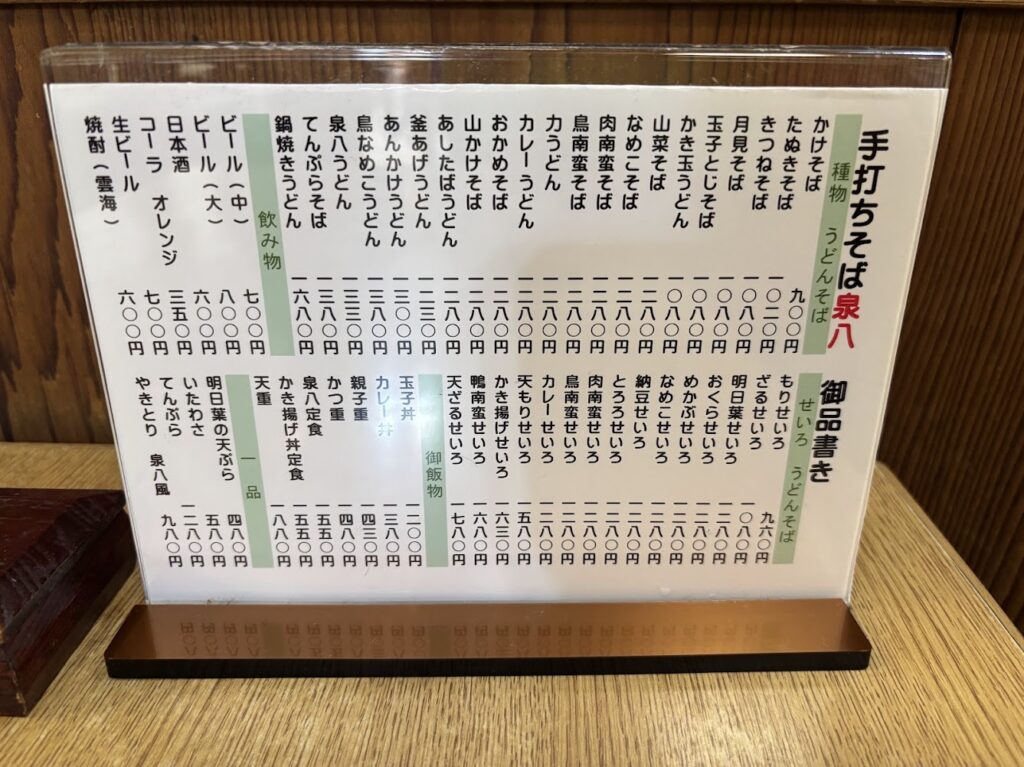 手打ちそば泉八 御品書き
種物 うどんそば
かけそば 九〇〇円
たぬきそば 一〇二〇円
きつねそば 一〇八〇円
月見そば 一〇八〇円
玉子とじそば 一〇八〇円
かき玉うどん 一〇八〇円
山菜そば 一二八〇円
なめこそば 一二八〇円
肉南蛮そば 一二八〇円
鳥南蛮そば 一二八〇円
力うどん 一二八〇円
カレーうどん 一二八〇円
おかめそば 一二八〇円
山かけそば 一二八〇円
あしたばうどん 一二八〇円
釜あげうどん 一二三〇円
あんかけうどん 一三〇〇円
鳥なめこうどん 一三八〇円
泉八うどん 一三三〇円
てんぷらそば 一三八〇円
鍋焼きうどん 一六八〇円
飲み物
ビール（中） 七〇〇円
ビール（大） 八〇〇円
日本酒 六〇〇円
コーラ オレンジ 三五〇円
生ビール 七〇〇円
焼酎（雲海） 六〇〇円
せいろ うどんそば
もりせいろ 九六〇円
ざるせいろ 一〇八〇円
明日葉せいろ 一二八〇円
おくらせいろ 一二八〇円
めかぶせいろ 一二八〇円
なめこせいろ 一二八〇円
納豆せいろ 一二八〇円
とろろせいろ 一二八〇円
肉南蛮せいろ 一二八〇円
鳥南蛮せいろ 一二八〇円
カレーせいろ 一二八〇円
天もりせいろ 一五八〇円
かき揚げせいろ 一六三〇円
鴨南蛮せいろ 一六八〇円
天ざるせいろ 一七八〇円
御飯物
玉子丼 一二〇〇円
カレー丼 一三八〇円
親子重 一四三〇円
かつ重 一四八〇円
泉八定食 一五五〇円
かき揚げ丼定食 一五五〇円
天重 一八八〇円
一品
明日葉の天ぷら 四八〇円
いたわさ 五八〇円
てんぷら 一二八〇円
やきとり 泉八風 九八〇円